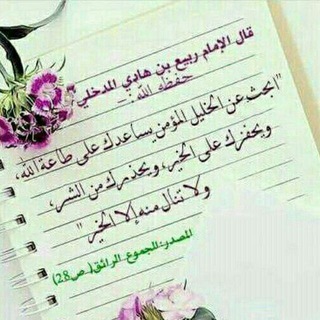 قال الإمام ربيع بن هادي المدخلي
حفظه الله :-
"ابحث عن الخليل المؤمن يساعدك على طاعة الله،
ويحفزك على الخير، ويحذرك من الشر،
ولا تنال منه إلا الخير"
المصدر:المجموع الرائق(ص28)